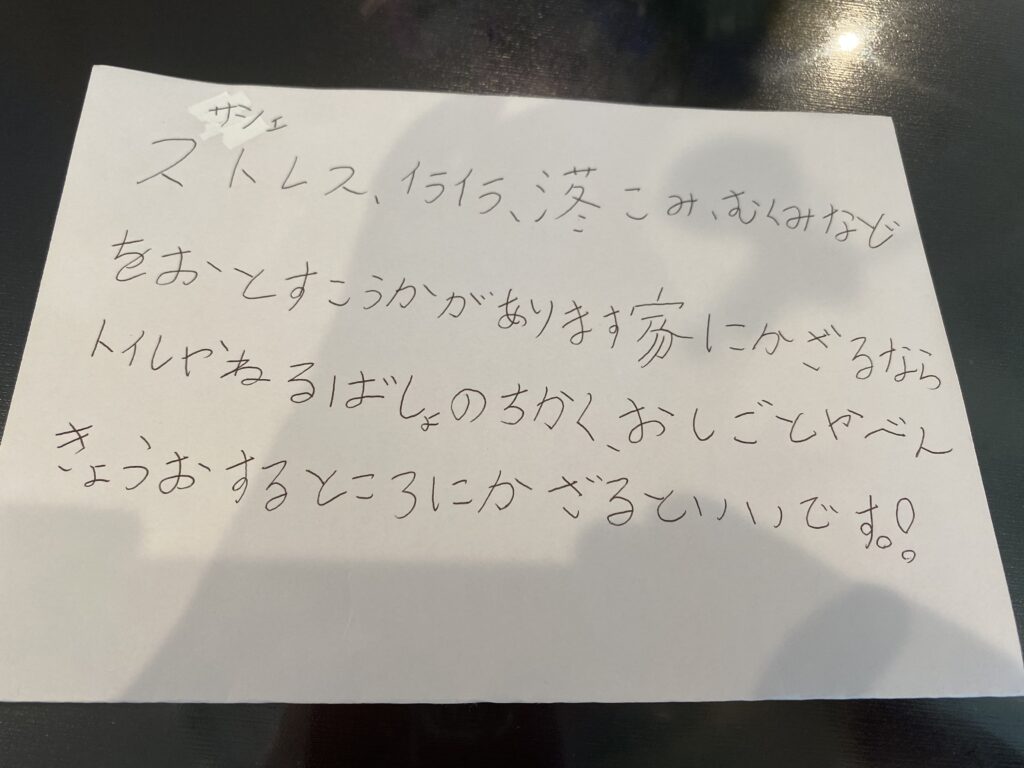 サシェ
ストレス、イライラ、落こみ、むくみなど
をおとすこうかがあります家にかざるなら
トイレやねるばしょのちかく、おしごとやべん
きょうおするところにかざるといいです。!